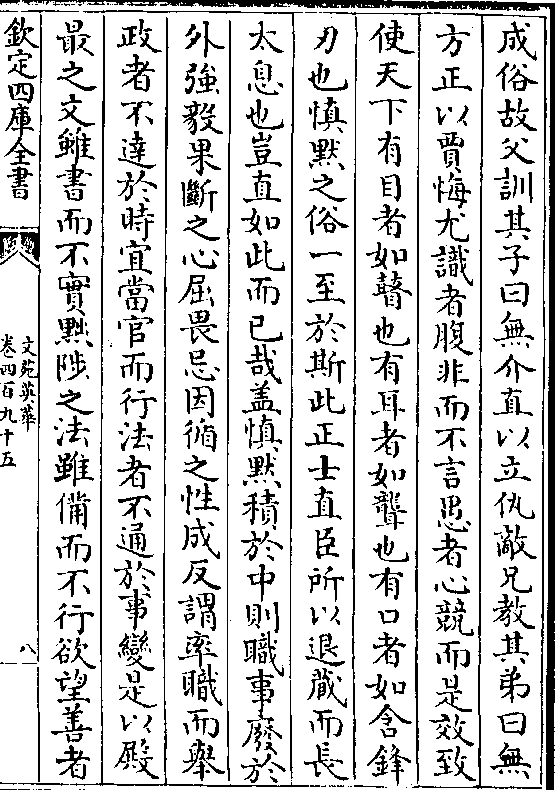 成俗故父訓其子曰無介直以立仇敵兄教其弟曰無
方正以賈悔尤識者腹非而不言愚者心競而是效致
使天下有目者如瞽也有耳者如聾也有口者如含鋒
刃也慎黙之俗一至於斯此正士直臣所以退藏而長
太息也豈直如此而已哉盖慎黙積於中則職事廢於
外強毅果斷之心屈畏忌因循之性成反謂率職而舉
政者不達於時宜當官而行法者不通於事變是以殿
最之文雖書而不實黜陟之法雖備而不行欲望善者
欽定四庫全書
文苑英華
卷四百九十五
八